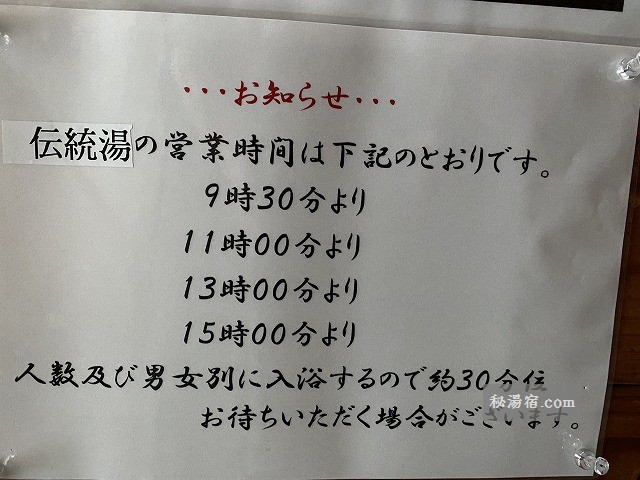 ・・・お知らせ・・・
伝統湯の営業時間は下記のとおりです。
9時30分より
11時00分より
13時00分より
15時00分より
人数及び男女別に入浴するので約30分位
お待ちいただく場合がございます。
秘湯宿.com